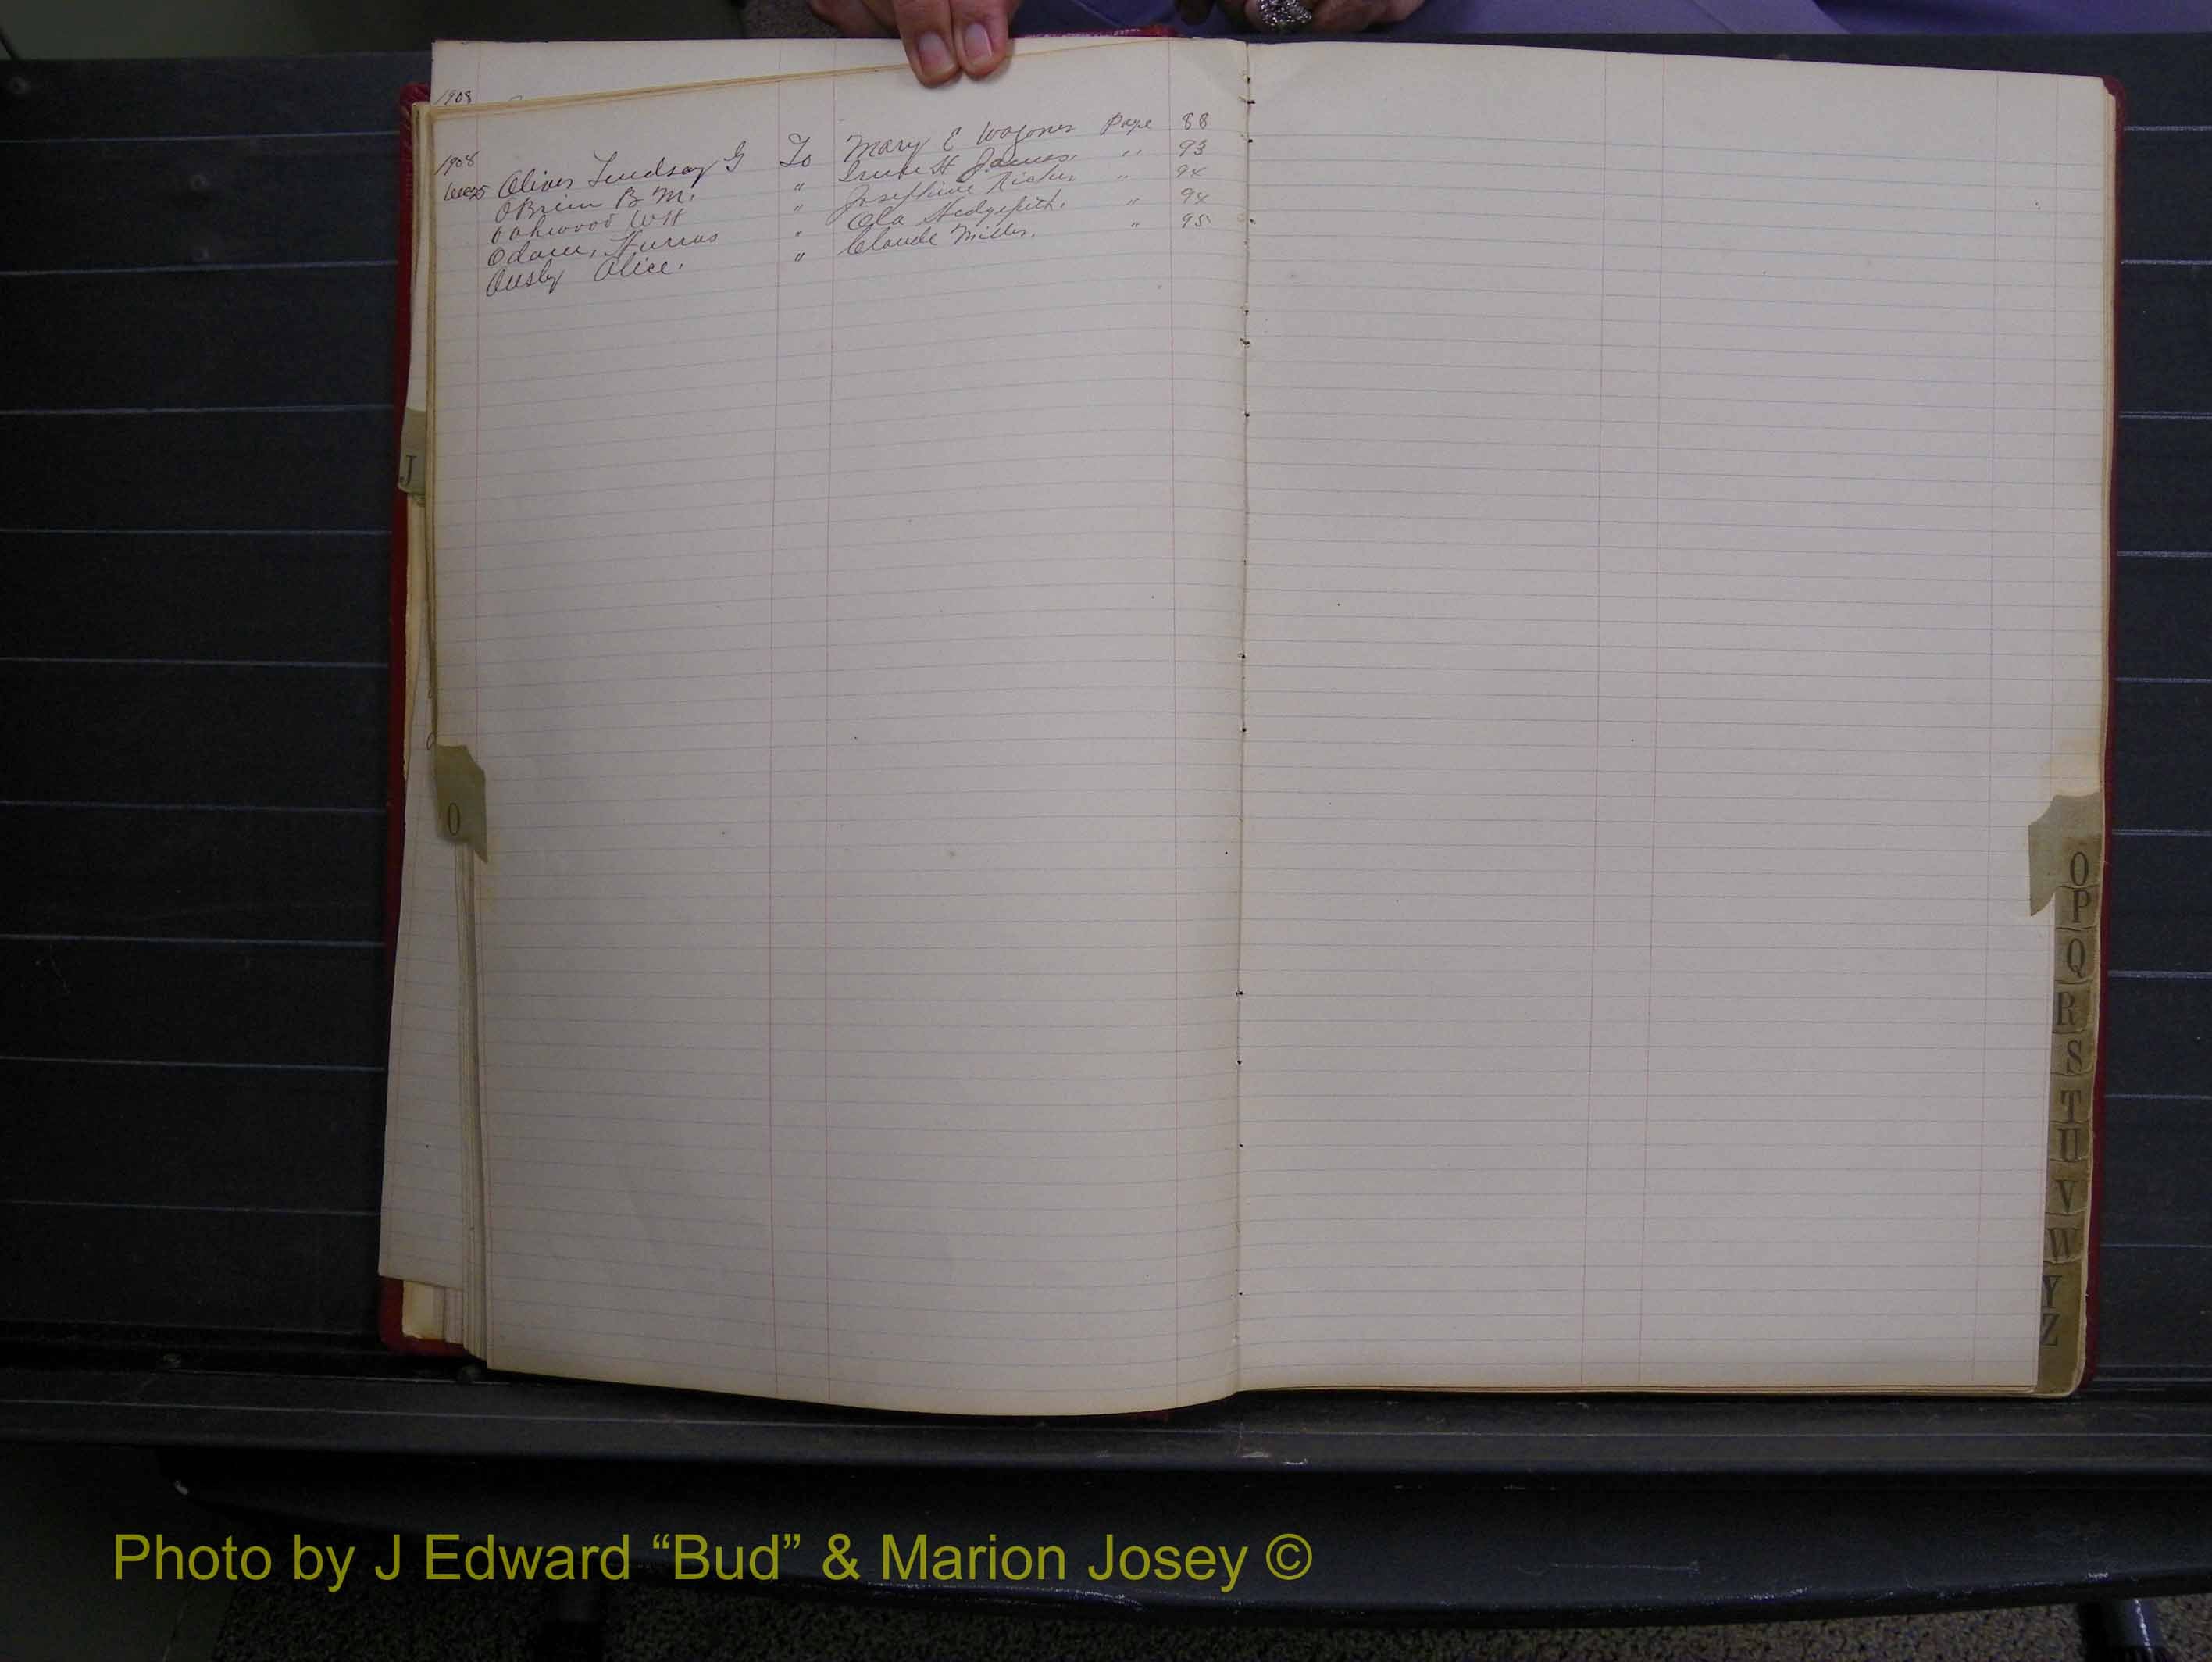 1908
1908
Oliver Lindsay G To Mary E Wagoner Page 88
OBrien B. M. " H James. " 93
Oakwood WH " Josephine " 94
Odom, " Ola Hedgepith. " 94
Ousby Alice. " Claude Miller. " 95
J
O
O
P
Q
R
S
T
U
V
W
Y
Z
Photo by J Edward “Bud” & Marion Josey ©